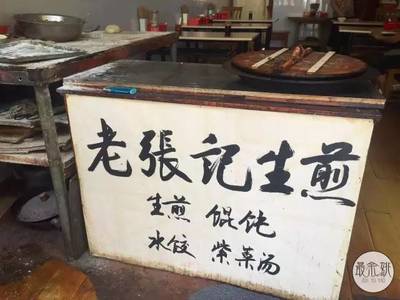 老張记生煎
生煎 馄饨
水饺 紫菜汤